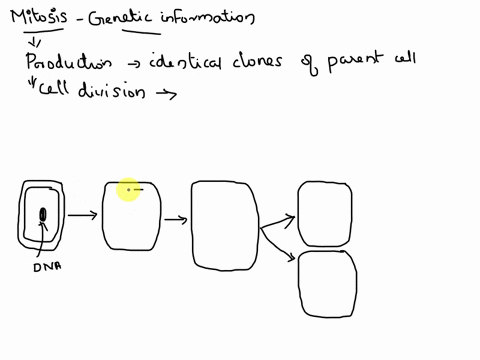 Mitosis - Genetic information
Production → identical clones of parent cell
cell division →
DNA